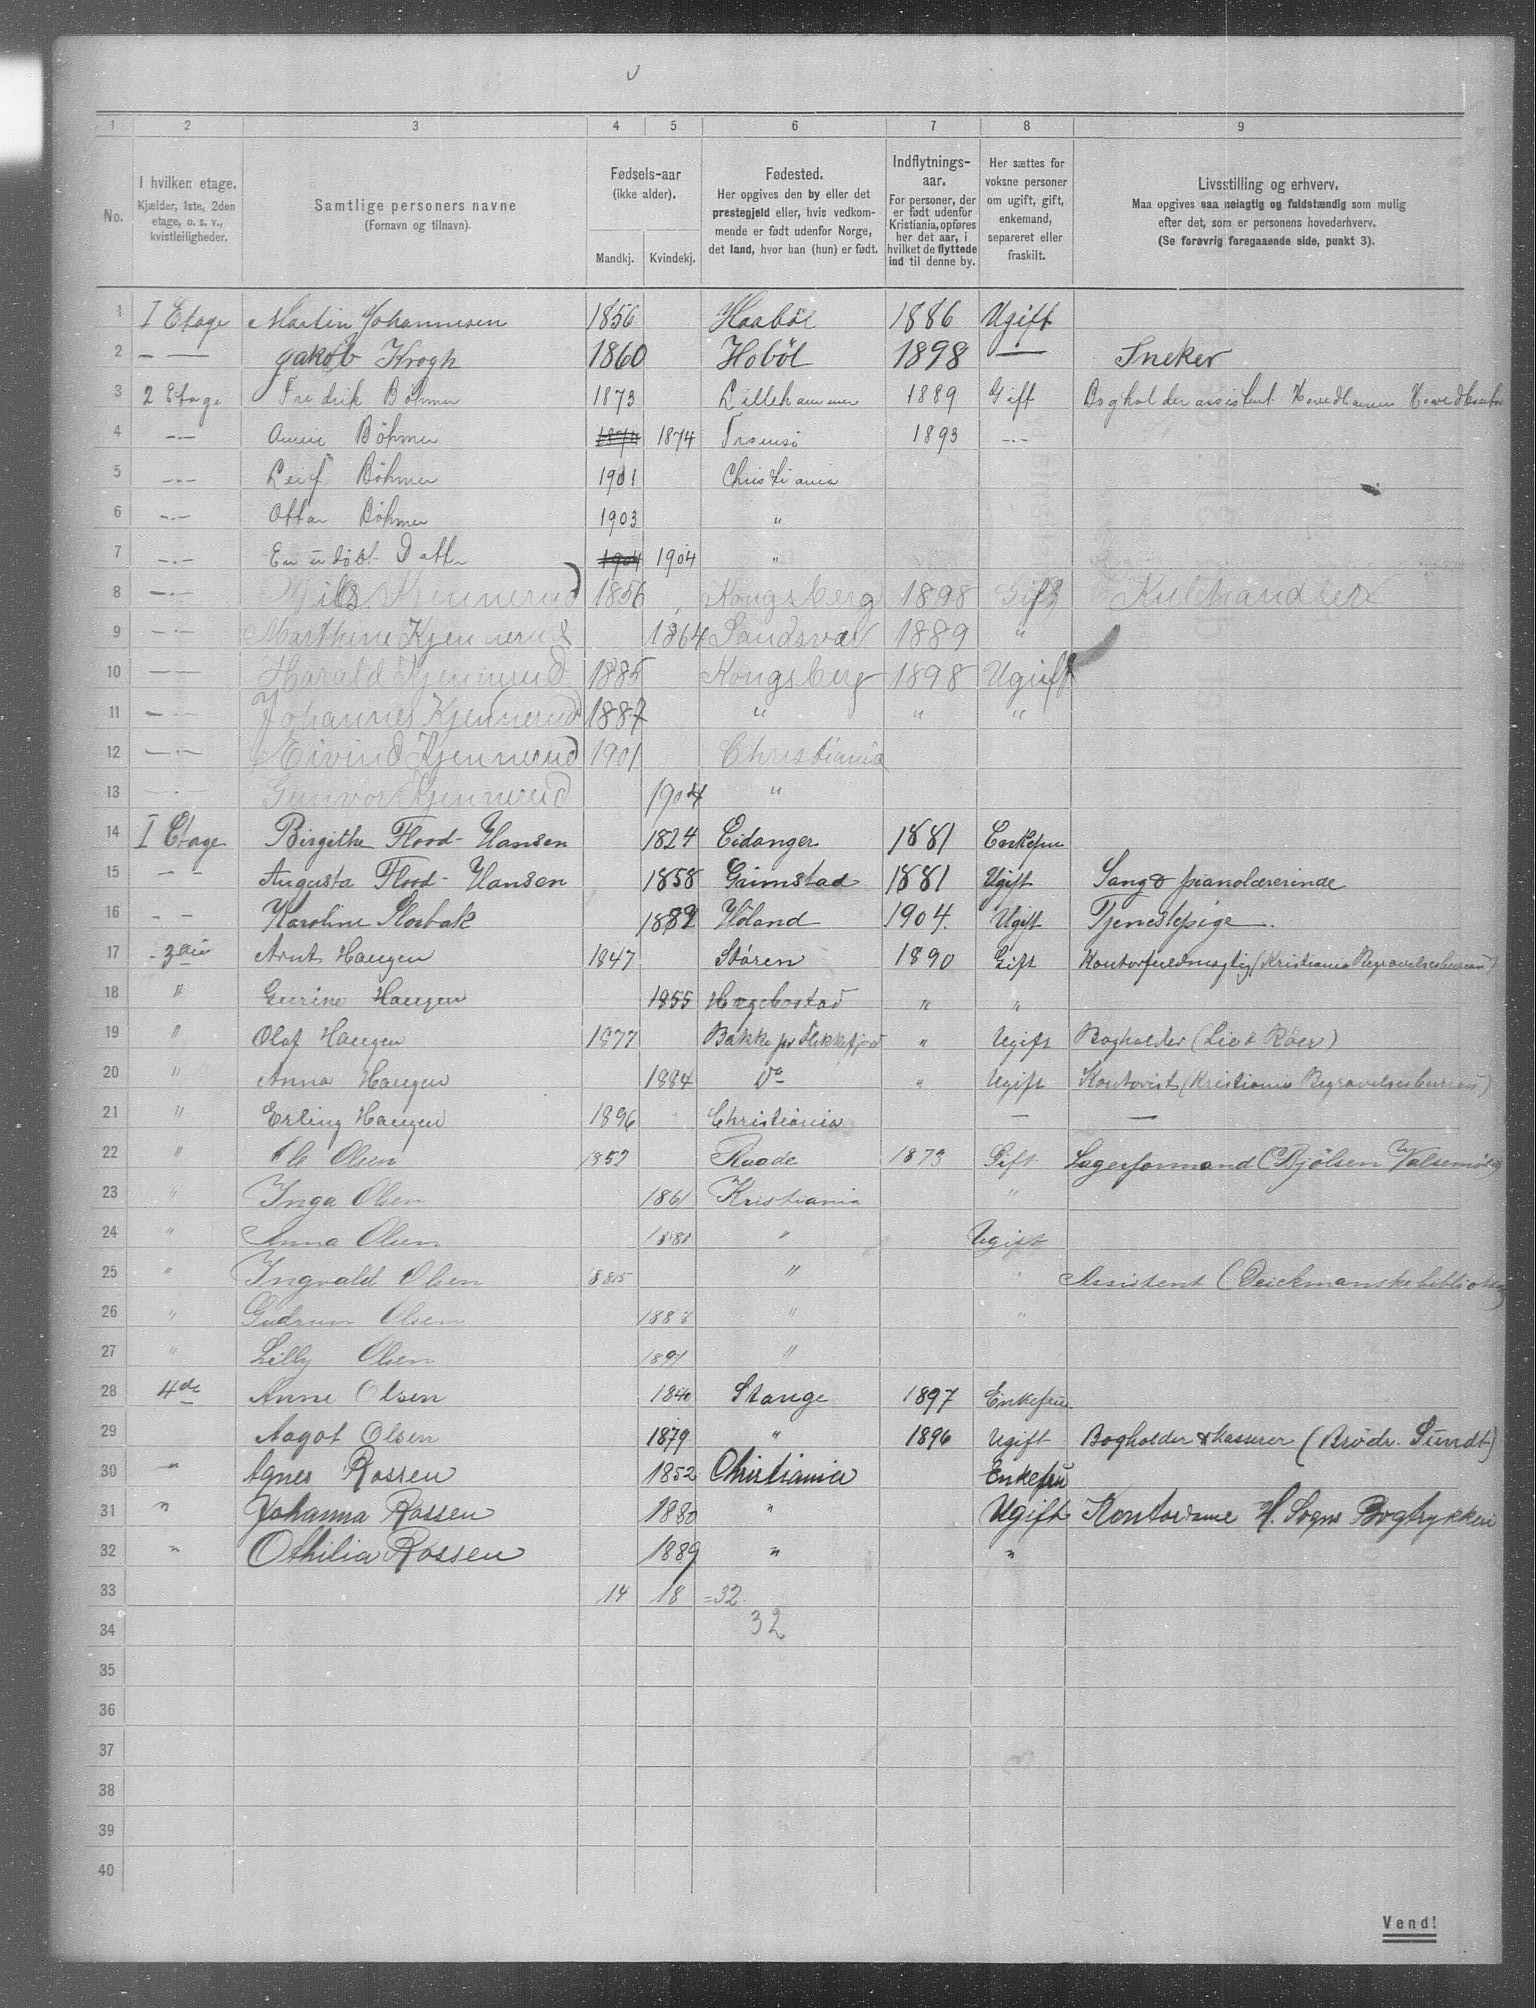 1 2 3 4 5 6 7 8 9
No.
I hvilken etage.
Kjælder, 1ste, 2den
etage, o. s. v.,
kvistleiligheder.
Samtlige personers navne
(Fornavn og tilnavn).
Fødsels-aar
(ikke alder).
Mandkj. Kvindekj.
Fødested.
Her opgives den by eller det
prestegjeld eller, hvis vedkom-
mende er født udenfor Norge,
det land, hvor han (hun) er født.
Indflytnings-
aar.
For personer, der
er født udenfor
Kristiania, opføres
her det aar, i
hvilket de flyttede
ind til denne by.
Her sættes for
voksne personer
om ugift, gift,
enkemand,
separeret eller
fraskilt.
Livsstilling og erhverv.
Maa opgives saa nøiagtig og fuldstændig som mulig
efter det, som er personens hovederhverv.
(Se forøvrig foregaaende side, punkt 3).
1 I Etage Martin Johannesen 1856 Haabøl 1886 Ugift
2 — — Jakob Krogh 1860 Hobøl 1898 — Sneker
3 2 Etage Fredrik Bøhmer 1873 Lillehammer 1889 Gift Bogholderassistent
4 -·- Bøhmer 1874 1874 Tromsø 1893 -·-
5 -·- Leif Bøhmer 1901 Christiania
6 -·- Ottar Bøhmer 1903 "
7 -·- En udøbt Datter 1904 1904 "
8 -·- Nils Kjennerud 1856 Kongsberg 1898 Gift Kulhandler
9 -·- Marthine Kjennerud 1864 Sandsvær 1889 "
10 -·- Harald Kjennerud 1885 Kongsberg 1898 Ugift
11 -·- Johannes Kjennerud 1887 " " "
12 -·- Eivind Kjennerud 1901 Christiania
13 -·- Gunvor Kjennerud 1904 "
14 I Etage Birgithe Flood-Hansen 1824 Eidanger 1881 Enkefru
15 - - Augusta Flood-Hansen 1858 Grimstad 1881 Ugift Sang & pianolærerinde
16 - - Karoline 1889 Høland 1904. Ugift Tjenestepige.
17 3die Arnt Haugen 1847 Støren 1890 Gift Kontorfuldmægtig (Kristiania Begravelsesbureau)
18 " Gurine Haugen 1855 Hægebostad " "
19 " Olaf Haugen 1877 Bakke pr Flekkefjord " Ugift Bogholder (Lie & Røer)
20 " Anna Haugen 1884 Do " Ugift Kontorist (Kristiania Begravelsesbureau)
21 " Erling Haugen 1896 Christiania — —
22 " Ole Olsen 1852 Raade 1873 Gift Lagerformand (Bjølsen Valsemølle)
23 " Inga Olsen 1861 Kristiania "
24 " Anna Olsen " Ugift
25 " Ingvald Olsen 8815 " " Assistent (Deichmanske bibliothek)
26 " Gudrun Olsen " "
27 " Lilly Olsen 1891 "
28 4de Anne Olsen 1840 Stange 1897 Enkefru
29 Aagot Olsen 1879 " 1896 Ugift Bogholder & Kasserer (Brødr. Sundt)
30 " Agnes Rossen 1852 Christiania Enkefru
31 " Johanna Rossen 1880 " Ugift Kontordame H. Sogns Bogtrykkeri
32 " Othilia Rossen 1889 " "
33 14 18 =32
34 32
35
36
37
38
39
40
Vend!